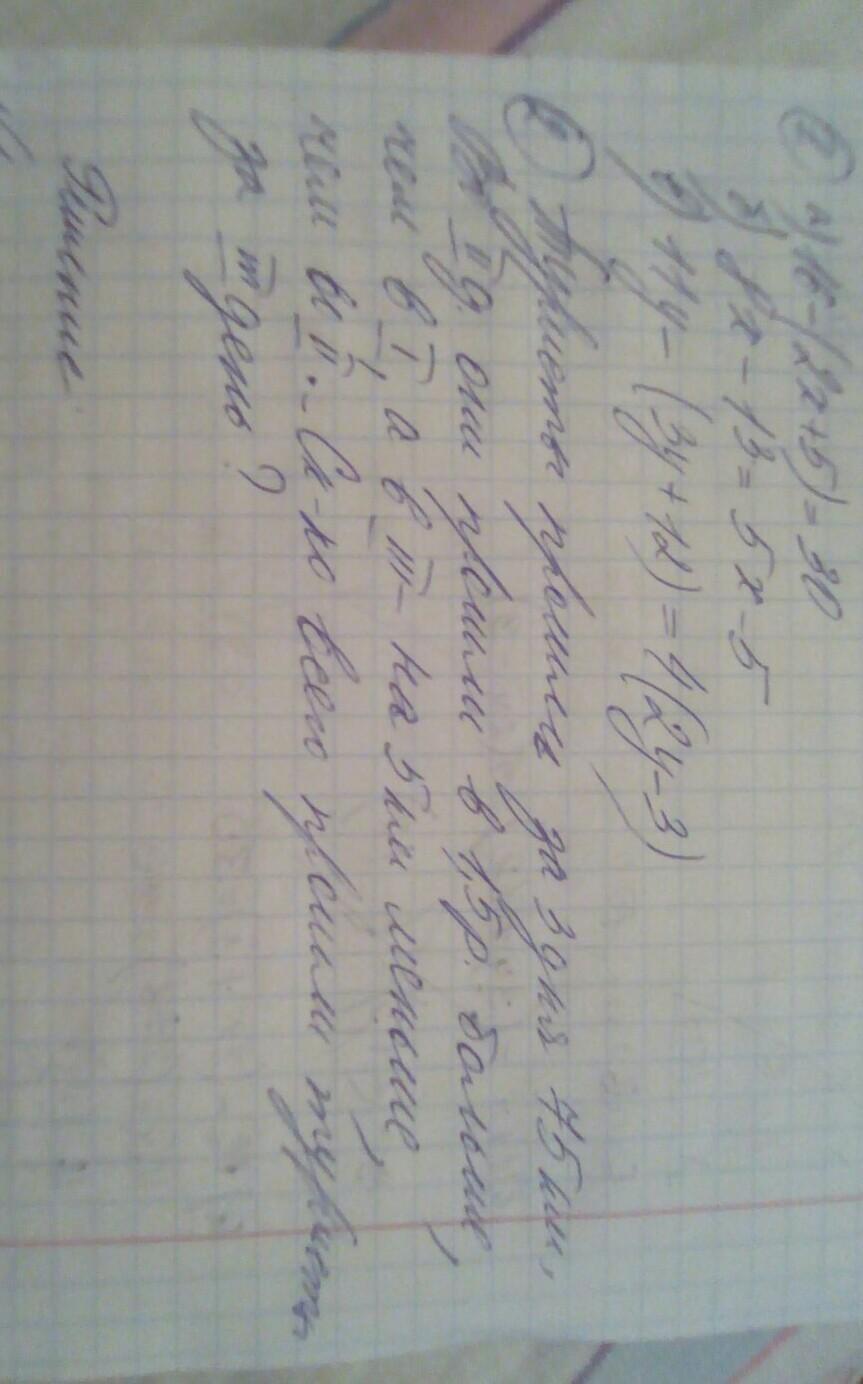 ② а) 16-(2x+5)=30
б) 8x-13=5x-5
в) 11y-(3y+12)=4(2y-3)
② Туристы прошли за 3 дня 75 км,
Во II д. они прошли в 1,5 р. больше,
чем в I, а в III - на 5 км меньше,
чем во II. Ск-ко всего прошли туристы
за III день?
Решение